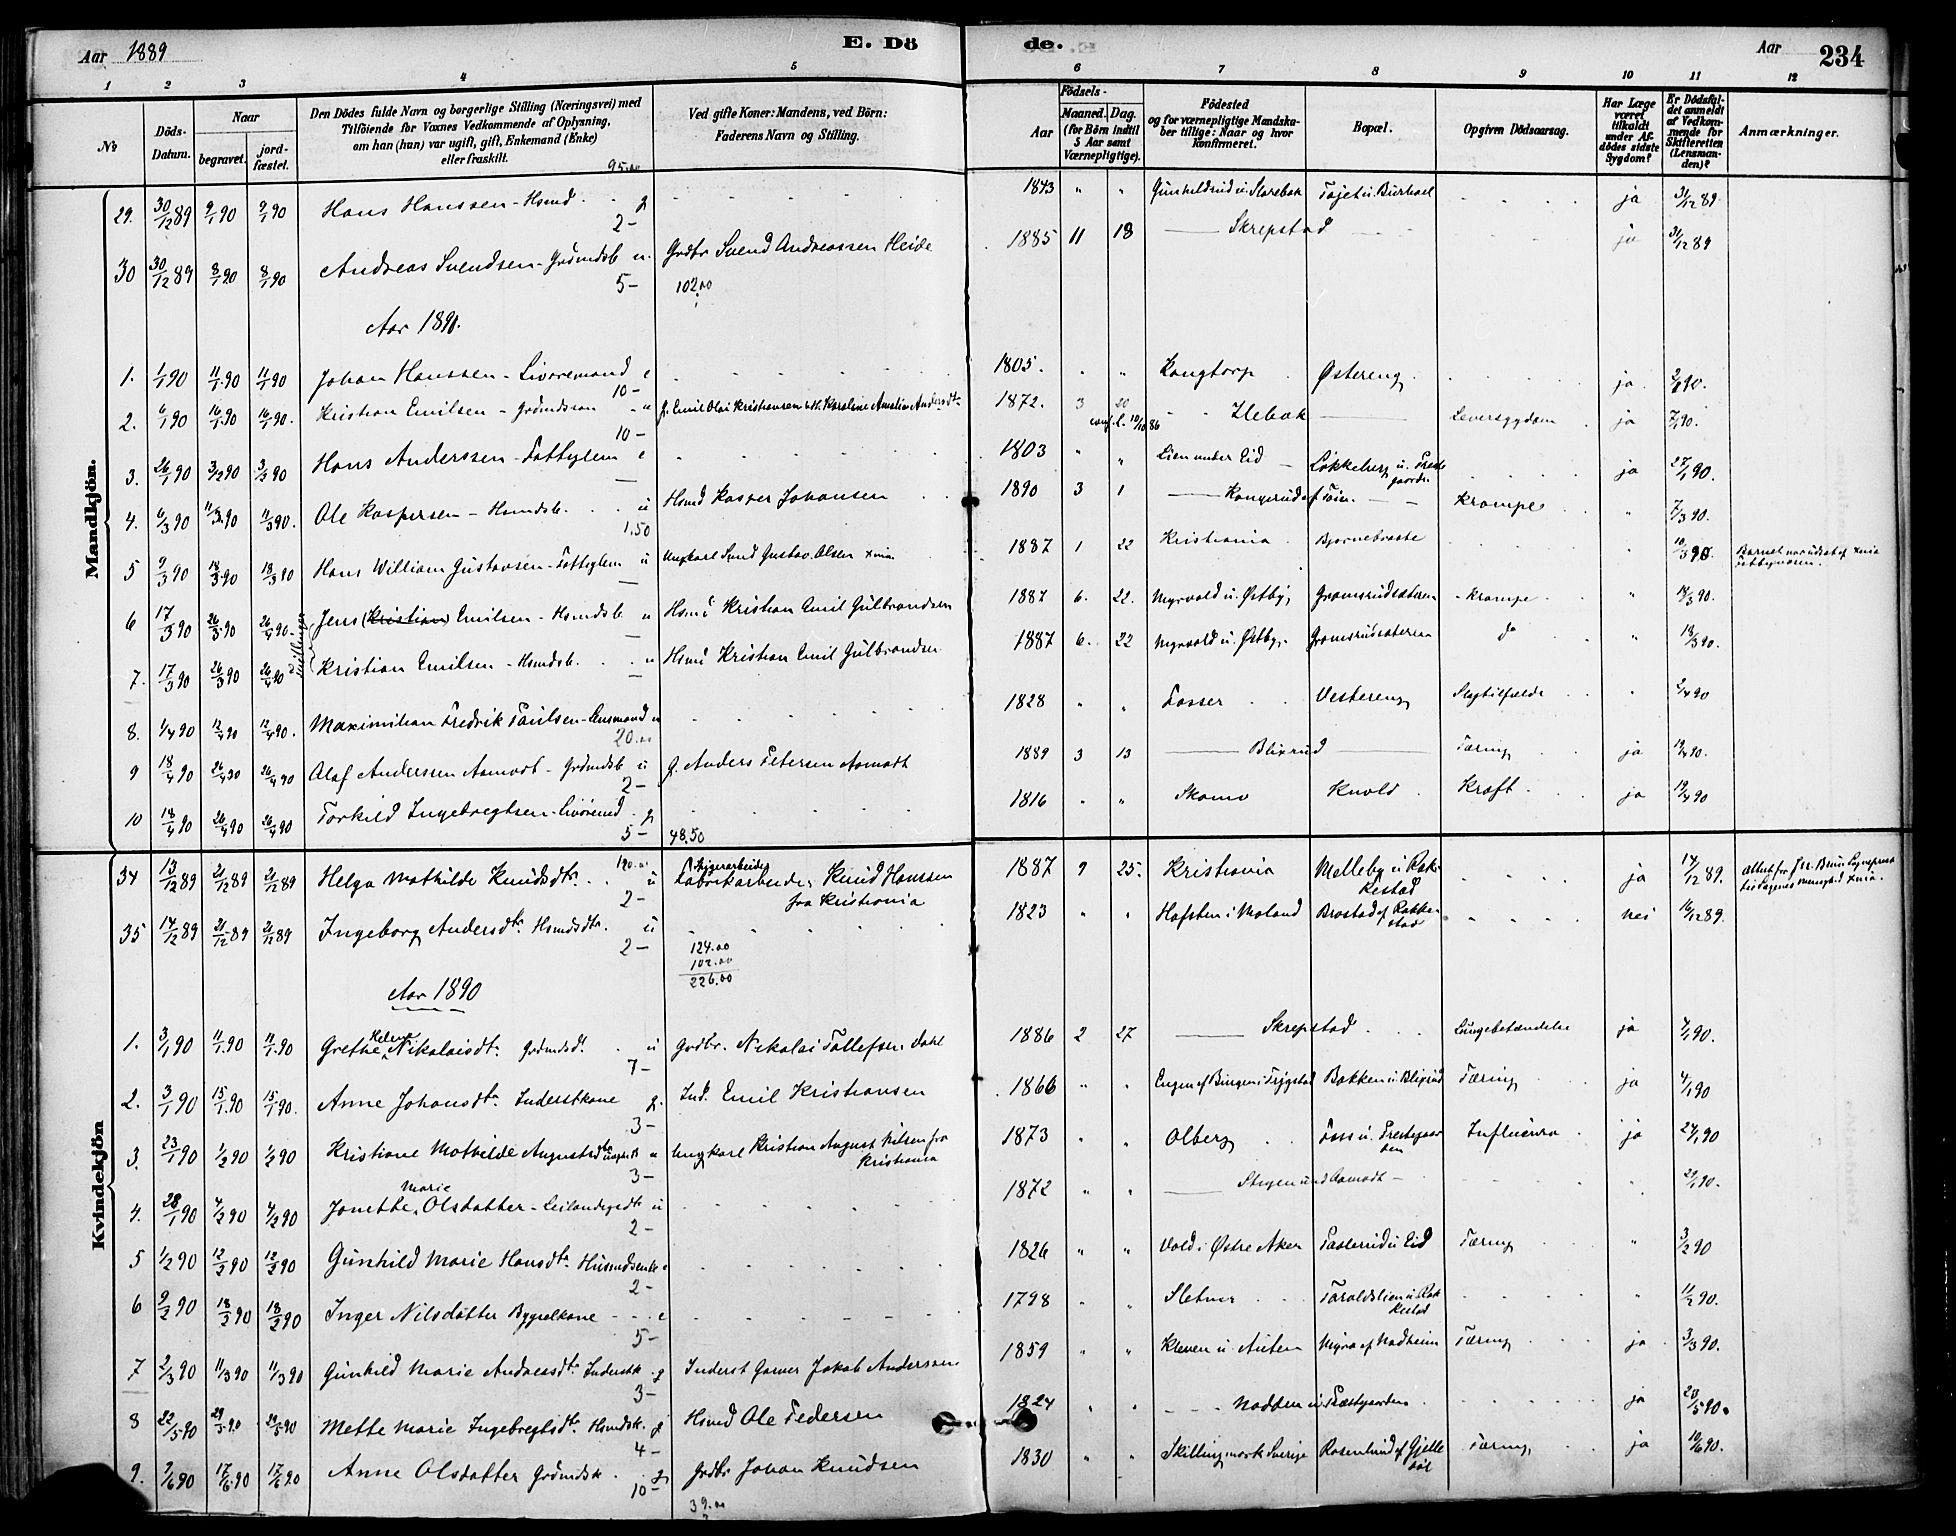 Aar 1889 E. Dö
de. Aar 234
1 2 3 4 5 6 7 8 9 10 11 12
No
Döds-Datum.
Naar
begravet.
jord-fæstet.
Den Dödes fulde Navn og borgerlige Stilling (Næringsvei) med
Tilföiende for Voxnes Vedkommende af Oplysning,
om han (hun) var ugift, gift, Enkemand (Enke)
eller fraskilt.
Ved gifte Koner: Mandens, ved Börn:
Faderens Navn og Stilling.
Födsels-
Aar
Maaned. Dag.
(for Börn indtil
5 Aar samt
Værnepligtige).
Födested
og for værnepligtige Mandska-
ber tillige: Naar og hvor
konfirmeret.
Bopæl.
Opgiven Dödsaarsag.
Har Læge
været
tilkaldt
under Af-
dödes sidste
Sygdom?
Er Dödsfal-
det anmeldt
af Vedkom-
mende for
Skifteretten
(Lensman-
den)?
Anmærkninger.
95.00
Mandkjön.
29. 30/12 89 9/1 90 9/1 90 Hans Hanssen - Hsmd. g 1843 " " Gunhildrud u. Slorebak Tajet u. Burhoel ja 31/12 89
2-
30 30/12 89 8/1 90 8/1 90 Andreas Svendsen - Grdmdsb u. Grdbr Svend Andreassen Heide 1885 11 18 Skrepstad ja 31/12 89
5- 102.00
Aar 1890.
1. 1/1 90 11/1 90 11/1 90 Johan Hanssen - Livøremand e 1805. " " Kangtorp Østereng ja. 2/1 90.
10-
2. 6/1 90 16/1 90 16/1 90. Kristian Emilsen - Grdmdssøn u f. Emil Olai Kristiansen 1872. 3 20 Ilebak Leversygdom ja 7/1 90.
conf. l. 10/10 86
10-
3. 26/1 90 3/2 90 3/2 90 Hans Anderssen - Fattiglem e 1803 " " Lien under Eid Løkkeberg u. Prestegaarden ja 27/1 90.
4. 6/3 90 11/3 90 11/3 90. Ole Kaspersen - Hsmdsb. u Hsmd Kasper Johansen 1890 3 1 Kongsrud af Foss Krampe " 7/3 90.
1.50
5 9/3 90 18/3 90 18/3 90 Hans William Gustavsen - Fattiglem u Ungkarl Svend Gustav Olsen Xnia 1887 1 22 Kristiania Bjørnebraate " 10/3 90. Barnet var udsat af Xnia Fattigvæsen.
6 17/3 90 26/3 90 26/4 90 Jens (Kristian) Emilsen - Hsmdsb u Hsmd Kristian Emil Gulbrandsen 1887 6. 22. Myrvold u. Østby, Gramsrudsæteren Krampe " 18/3 90.
Tvillinger
7. 17/3 90 26/3 90 26/4 90 Kristian Emilsen - Hsmdsb. u Hsmd Kristian Emil Gulbrandsen 1887 6. 22 Myrvold u. Østby. Gramsrudsæteren do " 18/3 90.
8. 1/4 90 12/4 90 12/4 90. Maximilian Fredrik Paulsen - Lensmand u 1828 " " Fosser Vestereng Slagtilfælde " 2/4 90
20.00
9 18/4 90 26/4 90 26/4 90 Olaf Andersen Aamodt - Grdmdsb u f. Anders Petersen Aamodt 1889 3 13 Blixrud Tæring ja 19/4 90.
2-
10 18/4 90 26/4 90 26/4 90 Torkild Ingebregtsen - Livøremd g 1816 " " Skamo Knold Kræft ja 19/4 90
5- 48.50
Kvindekjön
34 13/12 89 21/12 89 21/12 89 Helga Mathilde Knudsdtr. u Fabrikarbeider Knud Hanssen 1887 9 25. Kristiania Melleby u. Rakkestad ja 14/12 89.
2- fra Kristiania
35 14/12 89 21/12 89 21/12 89 Ingeborg Andersdtr Hsmdsdtr. u 1823 " " Hafsten i Moland Brostad af Rakkestad nei 16/12 89.
2- 124.00
102.00
226.00
Aar 1890
1. 3/1 90 11/1 90 11/1 90 Grethe Helene Nikolaisdtr Grdmdsdt. u Grdbr. Nikolai Tollefsen Dahl 1886 2 27 Skrepstad Lungebetændelse ja 4/1 90.
7-
2. 3/1 90 15/1 90 15/1 90. Anne Johansdtr Inderstkone g. Ind. Emil Kristiansen 1866 " " Engen af Bingen i Trygstad Bakken u. Blixrud Tæring ja 4/1 90
3-
3. 23/1 90 1/2 90 1/2 90 Kristiane Mathilde Augustsdtr u Ungkarl Kristian August Nilsen fra Kristiania 1873 " " Olberg Foss u. Prestegaarden Influenza ja 24/1 90
3-
4. 28/1 90 4/2 90 4/2 90 Jonette Marie Olsdatter - Leilændigsdtr u 1872 " " Stegen und Aamodt " 29/1 90.
2-
5 1/2 90 12/2 90 12/2 90 Gunhild Marie Hansdtr Husmdsenke e 1826 " " Vold i Østre Aker Paslerud u Eid Tæring " 3/2 90
2-
6 9/2 90 18/2 90 18/2 90 Inger Nilsdatter Bygselkone e 1798 " " Sletner Taraldslien u. Rakkestad " 11/2 90.
5-
7 2/3 90 11/3 90 11/3 90 Gunhild Marie Andreasdtr Inderstk g Inderst Garver Jakob Andersen 1859 " " Kleven u. Auten Myra af Nadheim Tæring ja 3/3 90.
3-
8 22/5 90 29/5 90 29/5 90 Mette Marie Ingebregtsdtr Hsmdsk. g Hsmd Ole Pedersen 1824 " " Nadden u. Præstgarden ja 23/5 90.
4-
9. 9/6 90 17/6 90 17/6 90 Anne Olsdatter Grdmdsk g Grdbr Johan Knudsen 1830 " " Skillingmark Sverige Rosenlund af Gjellebøl Tæring ja 10/6 90.
10- 39.00